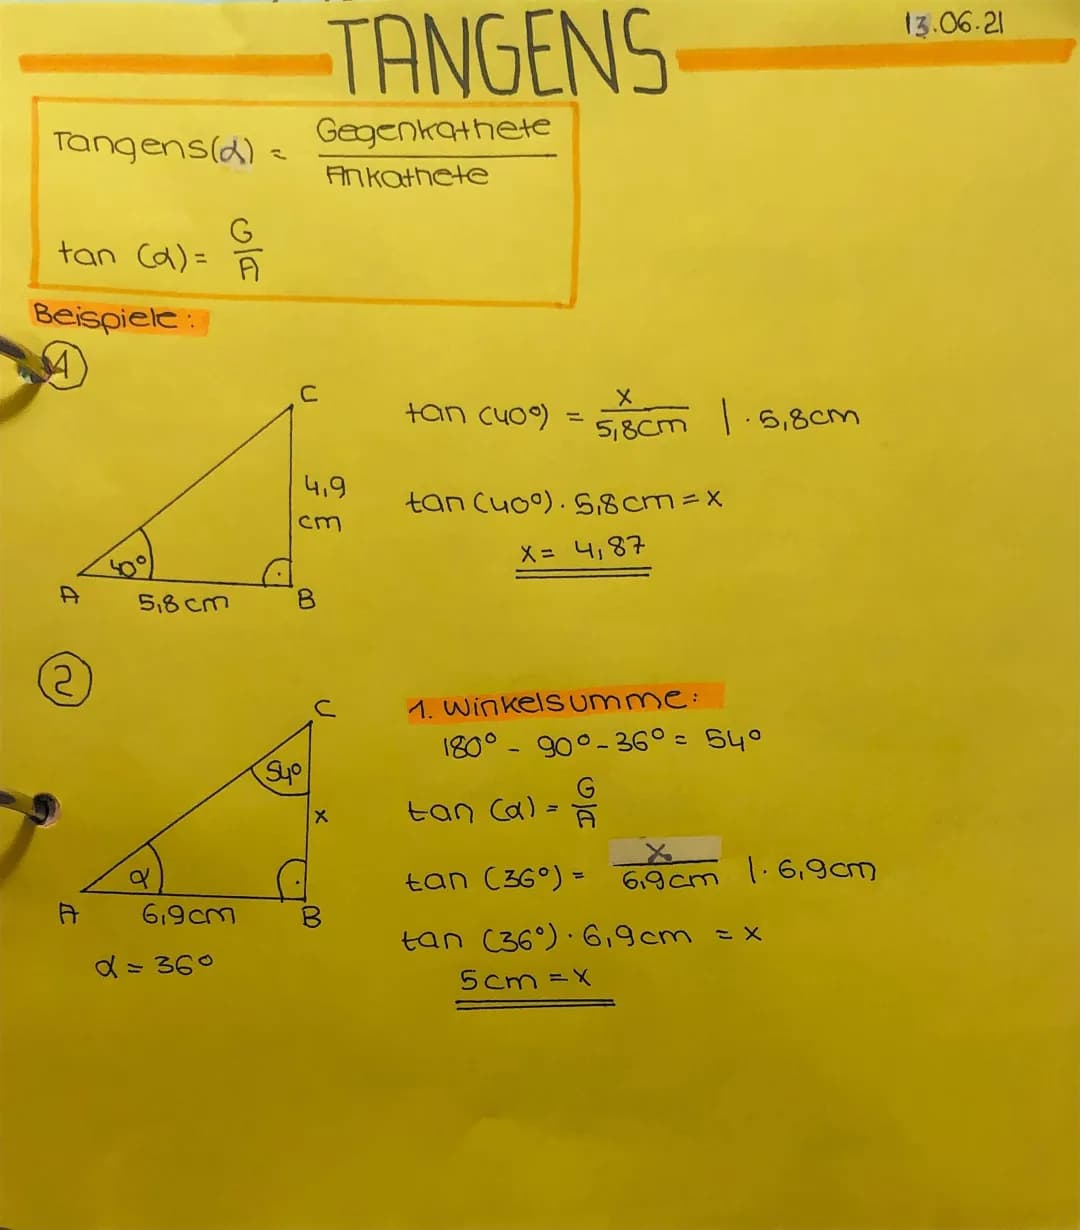 TANGENS
13.06.21
Tangens(α) = Gegenkathete
Ankathete
tan (α) = G
A
Beispiele:
1
C
4,9
cm
40°
A
5,8cm
B
tan (40°) = x | · 5,8cm
5,8cm
tan (40°) · 5,8cm = x
x = 4,87
2
C
54°
x
α
A
6,9cm
B
α = 36°
1. Winkelsumme:
180° - 90° - 36° = 54°
tan (α) = G
A
tan (36°) = x | · 6,9cm
6,9cm
tan (36°) · 6,9cm = x
5cm = x